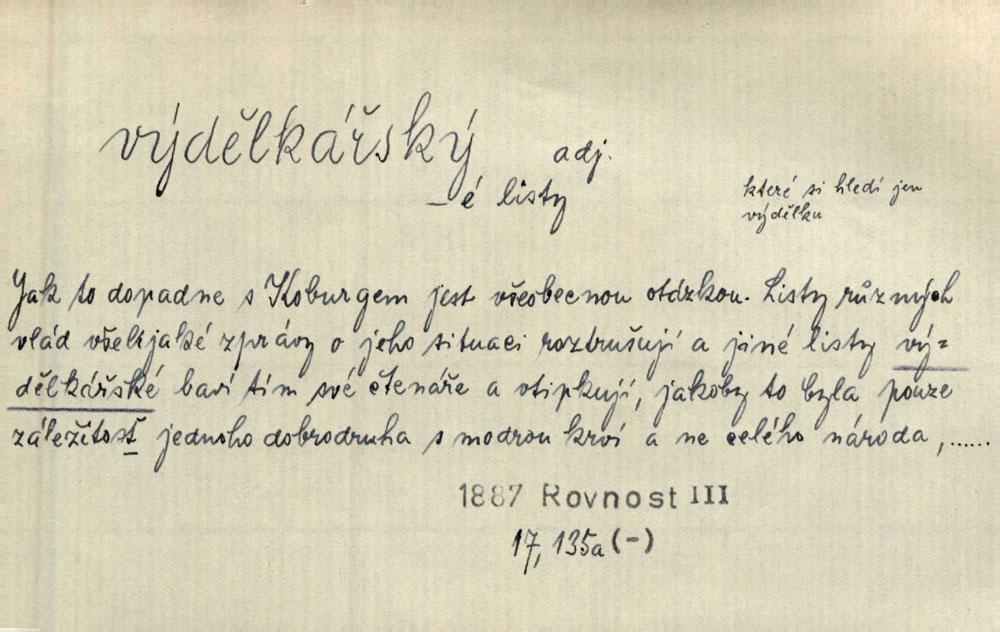 výdělkářský adj.
–é listy
které si hledí jen
výdělku
Jak to dopadne s Koburgem jest všeobecnou otázkou. Listy různých
vlád všelijaké zprávy o jeho situaci roztrušují a jiné listy vý=
dělkářské baví tím své čtenáře a vtipkují, jakoby to byla pouze
záležitosť jednoho dobrodruha s modrou krví a ne celého národa,......
1887 Rovnost III
17, 135a (-)